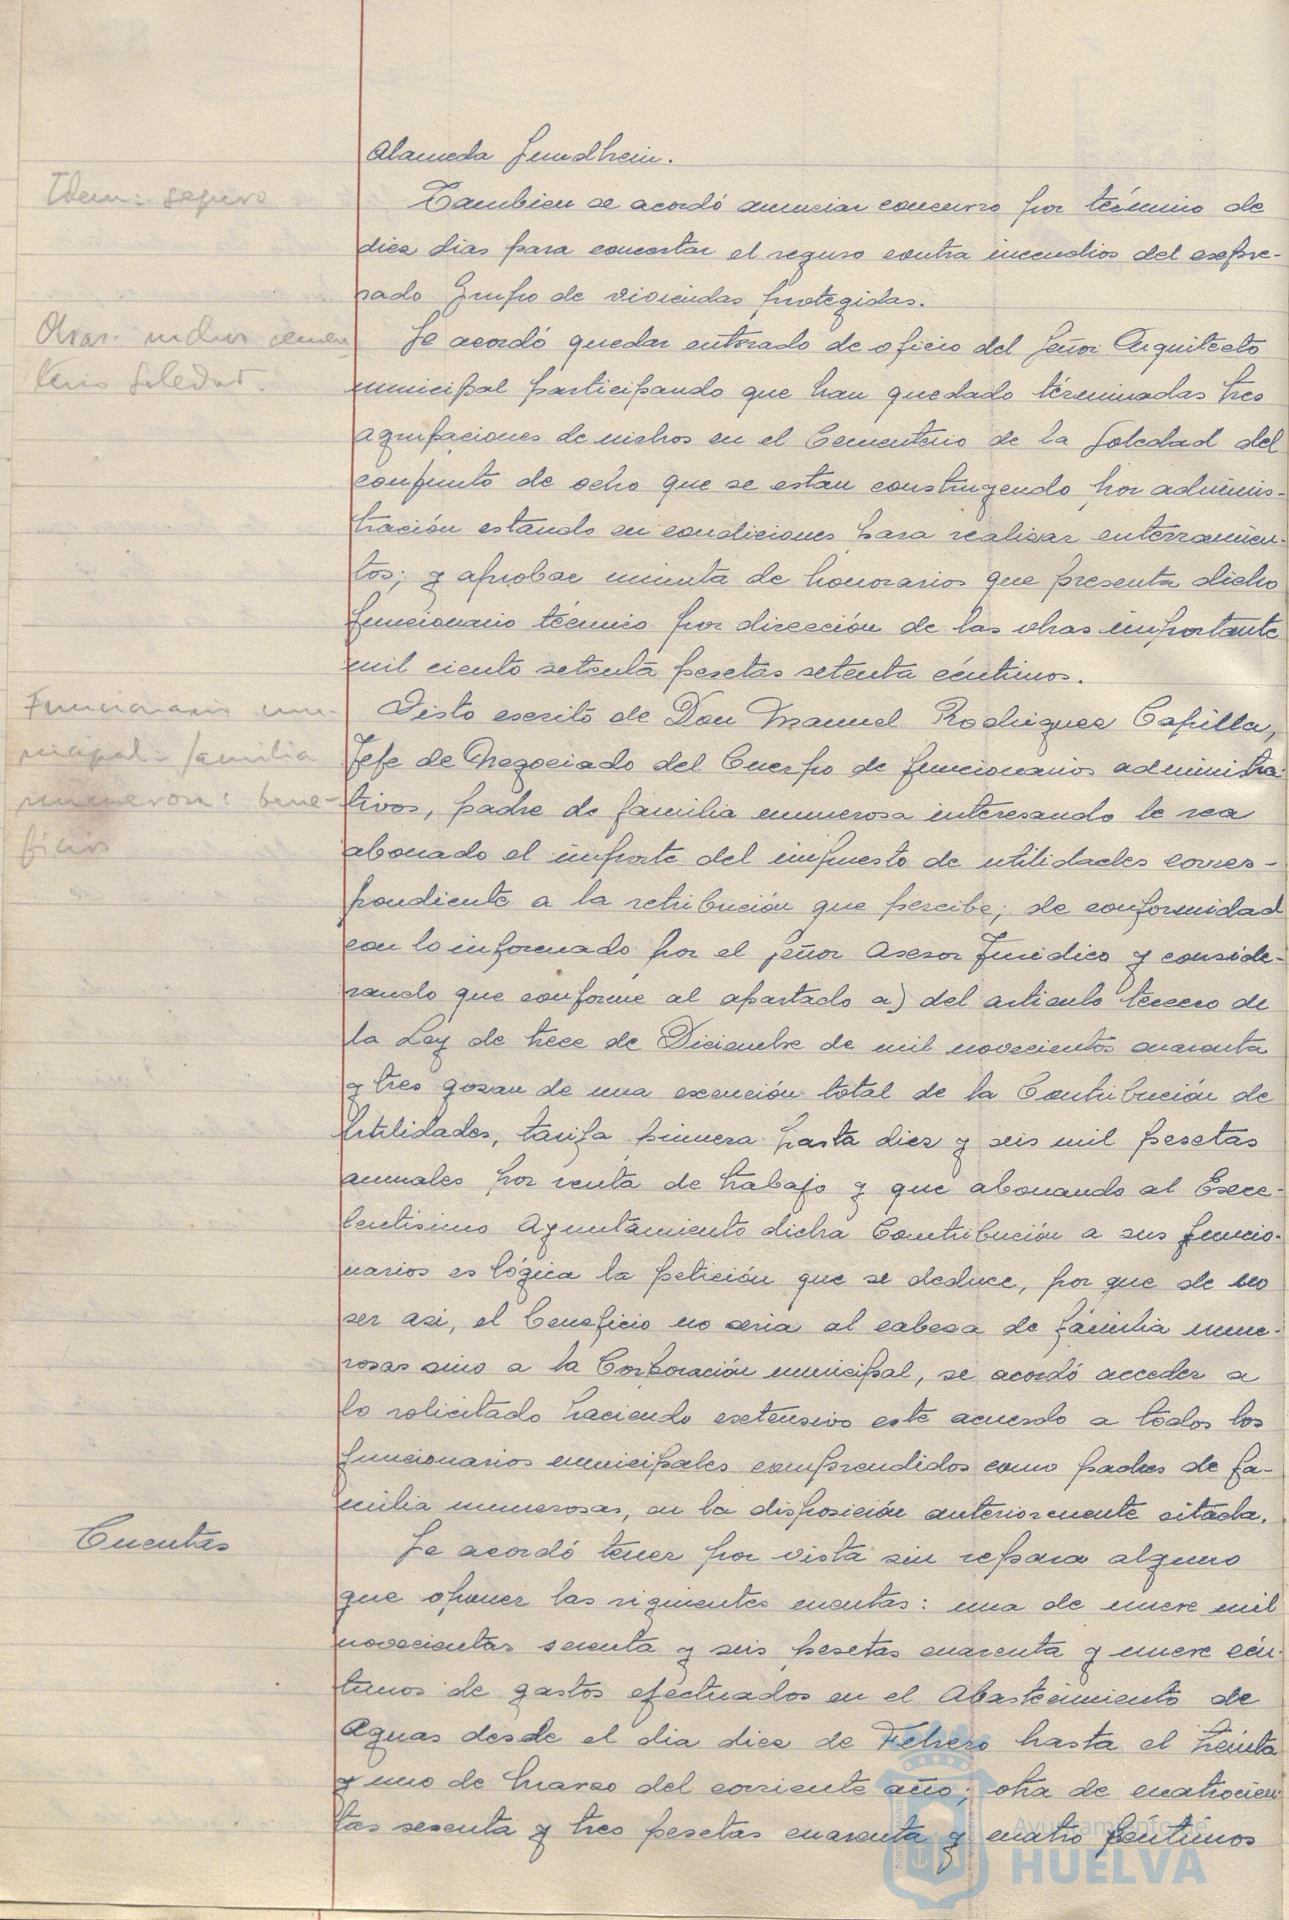 Alameda Sundheim.
Idem: seguro
Tambien se acordó anunciar concurso por término de
diez dias para concertar el seguro contra incendios del expre-
sado Grupo de viviendas protegidas.
Obras: nichos cemen
terio Soledad.
Se acordó quedar enterado de oficio del Señor Arquitecto
municipal participando que han quedado términadas tres
agrupaciones de nichos en el Cementerio de la Soledad del
conjunto de ocho que se estan construyendo por adminis-
tración estando en condiciones para realizar enterramien-
tos; y aprobar minuta de honorarios que presenta dicho
funcionario técnico por dirección de las obras importante
mil ciento setenta pesetas setenta céntimos.
Funcionario mu-
nicipal: familia
numerosa: bene-
ficios
Visto escrito de Don Manuel Rodriguez Capilla,
Jefe de Negociado del Cuerpo de funcionarios administra-
tivos, padre de familia numerosa interesando le sea
abonado el importe del impuesto de utilidades corres-
pondiente a la retribución que percibe; de conformidad
con lo informado por el señor Asesor Juridico y conside-
rando que conforme al apartado a) del articulo tercero de
la Ley de trece de Diciembre de mil novecientos cuarenta
y tres gozan de una exención total de la Contribución de
Utilidades, tarifa primera hasta diez y seis mil pesetas
anuales por renta de trabajo y que abonando el Exce-
lentisimo Ayuntamiento dicha Contribución a sus funcio-
narios es lógica la petición que se deduce, por que de no
ser asi, el beneficio no seria al cabeza de familia nume-
rosas sino a la Corporación municipal, se acordó acceder a
lo solicitado haciendo extensivo este acuerdo a todos los
funcionarios municipales comprendidos como padres de fa-
milia numerosas, en la disposición anteriormente citada.
Cuentas
Se acordó tener por vista sin reparo alguno
que oponer las siguientes cuentas: una de nueve mil
novecientas sesenta y seis pesetas cuarenta y nueve cén-
timos de gastos efectuados en el Abastecimiento de
Aguas desde el dia diez de Febrero hasta el treinta
y uno de Marzo del corriente año; otra de cuatrocien-
tas sesenta y tres pesetas cuarenta y cuatro céntimos
Ayuntamiento de
HUELVA